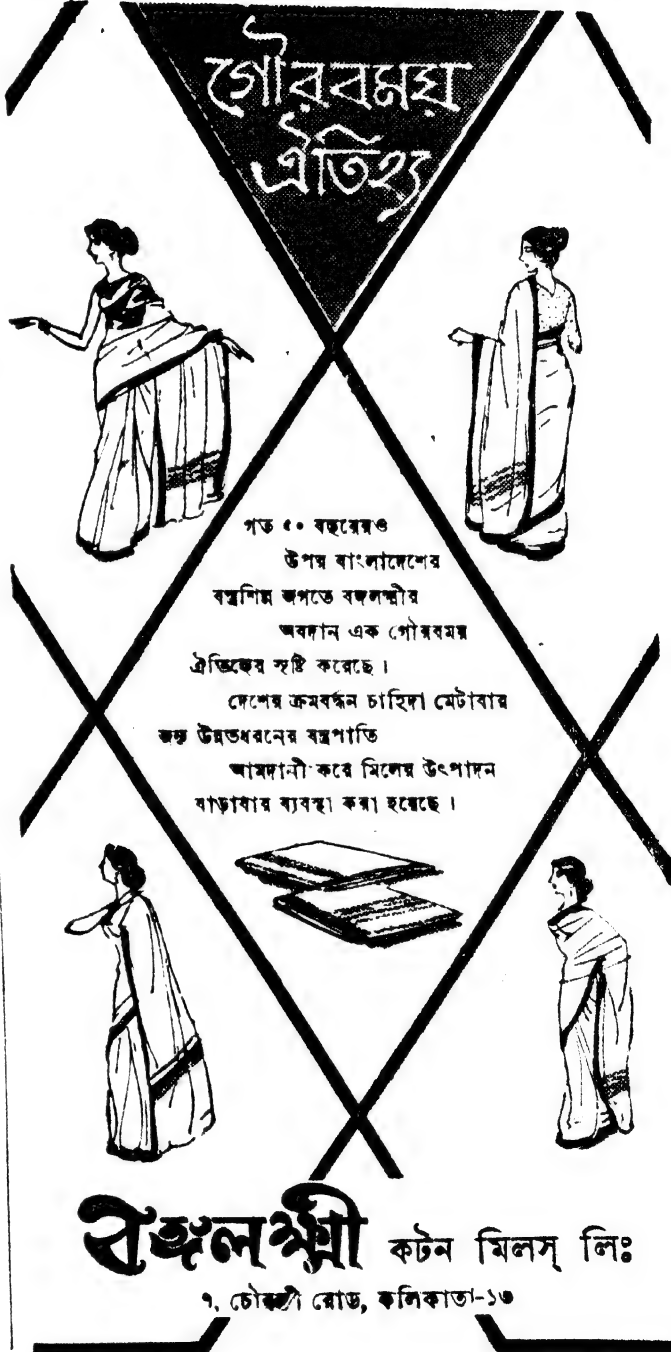 গৌরবময়
ঐতিহ্য
গত ৫০ বছরেরও
উপর বাংলাদেশের
বস্ত্রশিল্প জগতে বঙ্গলক্ষ্মীর
অবদান এক গৌরবময়
ঐতিহ্যের সৃষ্টি করেছে।
দেশের ক্রমবর্দ্ধন চাহিদা মেটাবার
জন্য উন্নতধরনের যন্ত্রপাতি
আমদানী করে মিলের উৎপাদন
বাড়াবার ব্যবস্থা করা হয়েছে।
বঙ্গলক্ষ্মী কটন মিলস্ লিঃ
৭, চৌরঙ্গী রোড, কলিকাতা-১৩